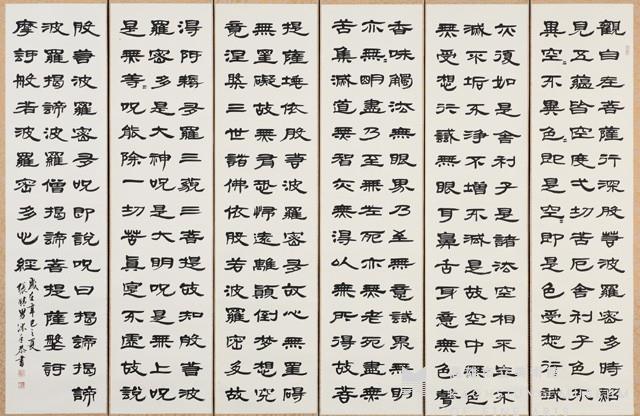 觀自在菩薩行深般若波羅密多時照
見五蘊皆空度一切苦厄舍利子色不
異空〻不異色〻即是空〻即是色受想行識
亦復如是舍利子是諸法空相不生不
滅不垢不淨不增不減是故空中無色
無受想行識無眼耳鼻舌身意無色聲
香味觸法無眼界乃至無意識界無〻明
亦無〻明盡乃至無老死亦無老死盡無
苦集滅道無智亦無得以無所得故菩
提薩埵依般若波羅密多故心無罣礙
無罣礙故無有恐怖遠離顛倒夢想究
竟涅槃三世諸佛依般若波羅密多故
得阿耨多羅三藐三菩提故知般若波
羅密多是大神呪是大明呪是無上呪
是無等〻呪能除一切苦真實不虛故說
般若波羅密多呪即說呪曰揭諦揭諦
波羅揭諦波羅僧揭諦菩提薩婆訶
摩訶般若波羅密多心經
歲在辛巳之夏
沐手恭書